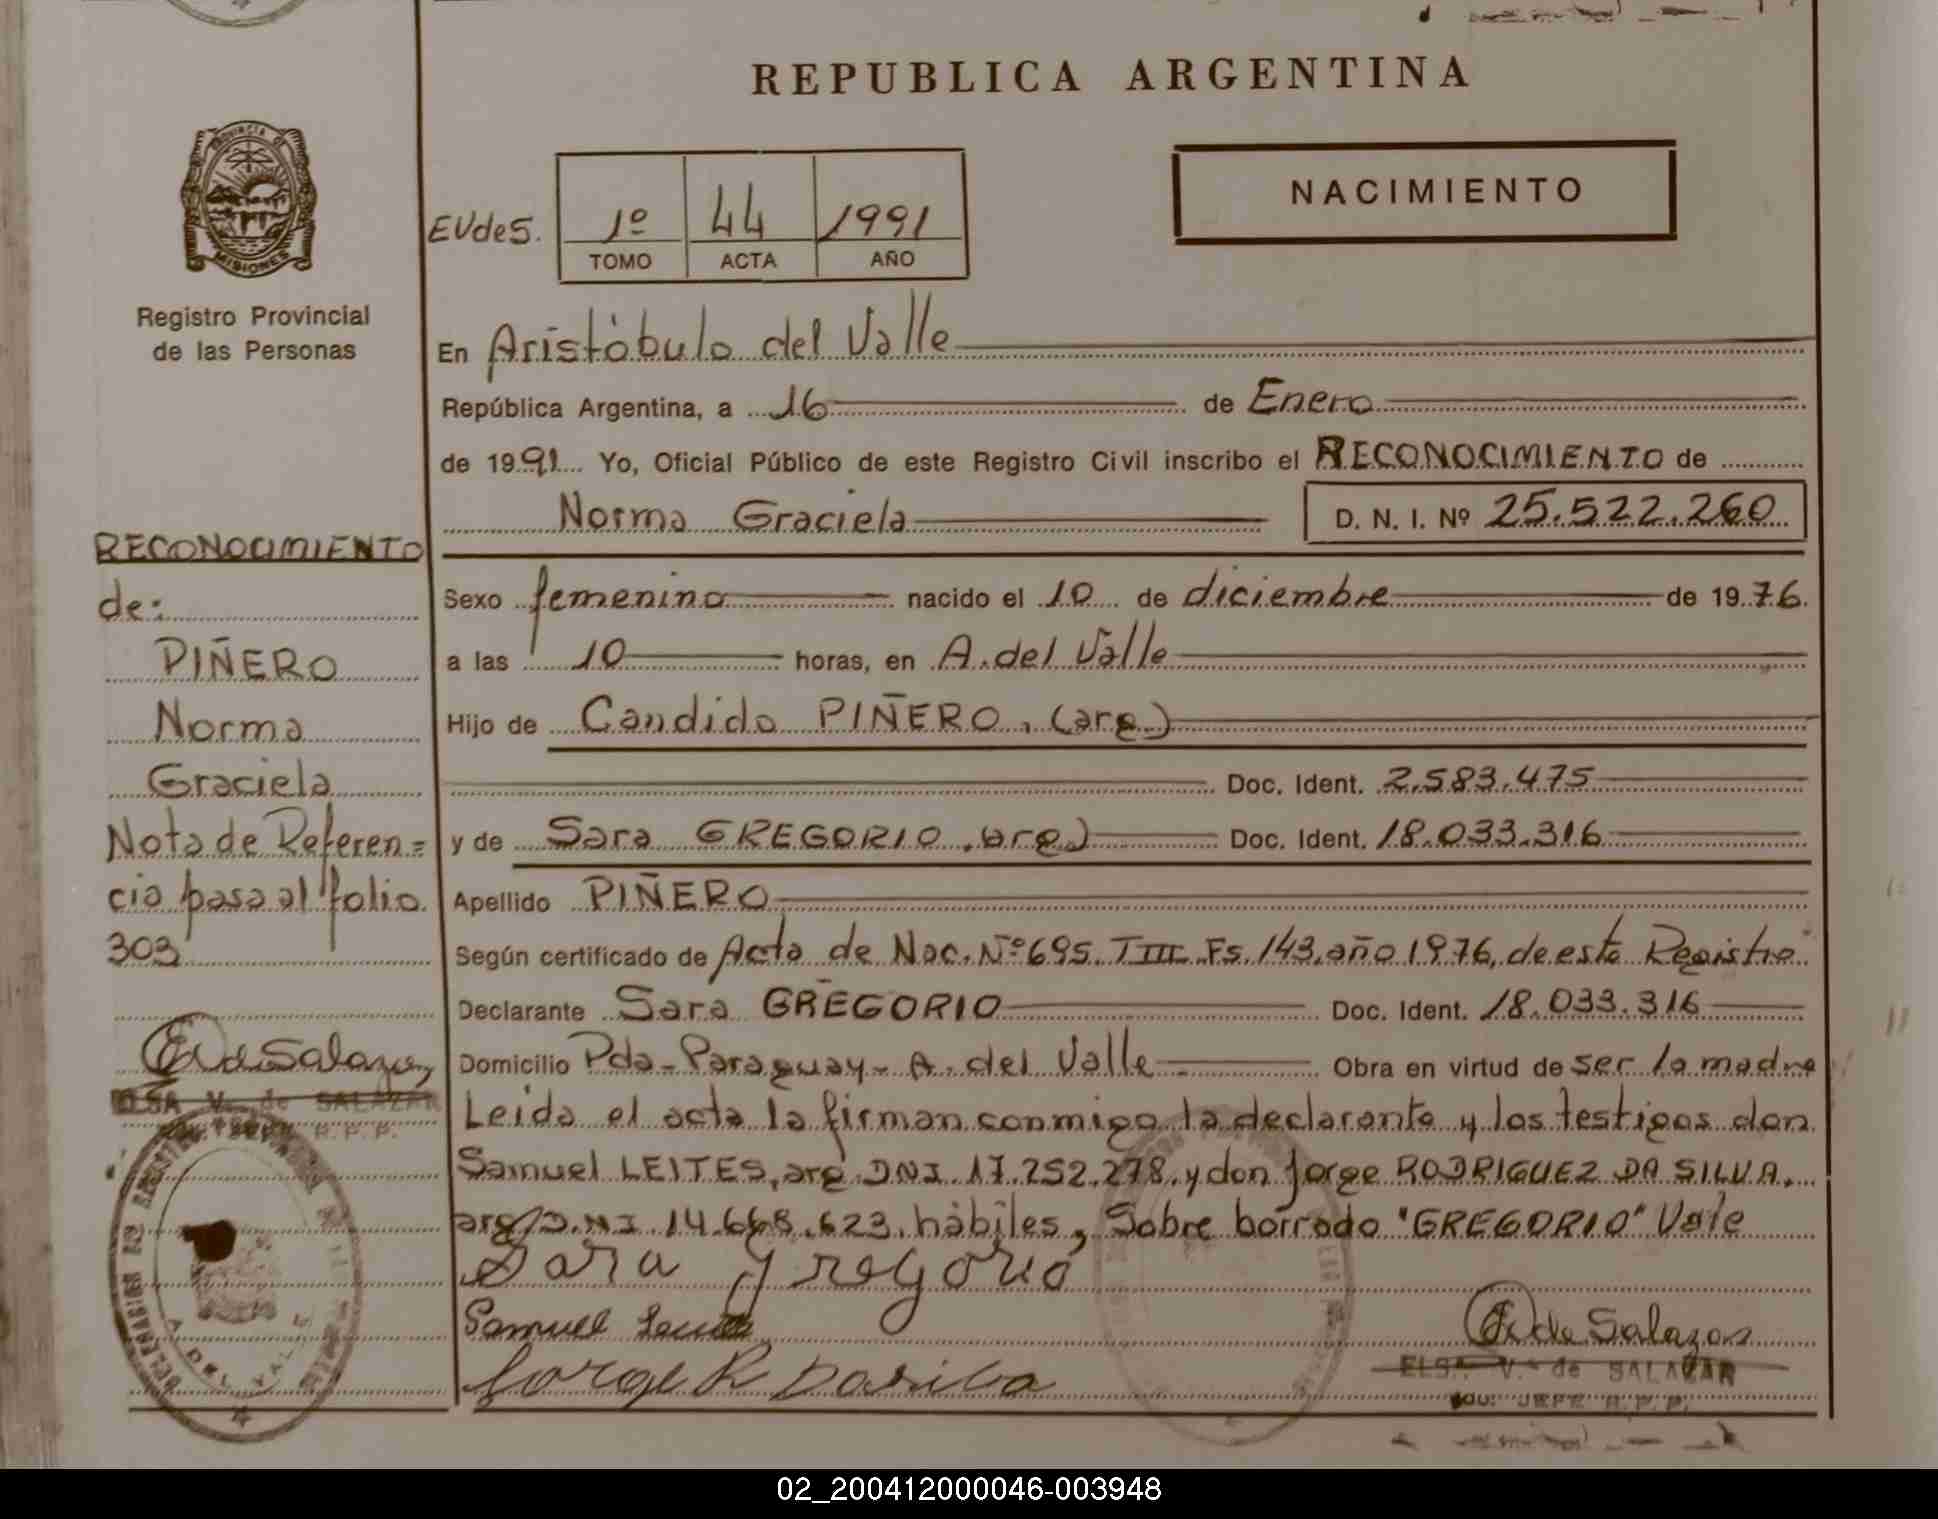 REPUBLICA ARGENTINA
PROVINCIA DE
MISIONES
Registro Provincial
de las Personas
EVdeS.
1º 44 1991
TOMO ACTA AÑO
NACIMIENTO
En Aristóbulo del Valle
República Argentina, a 16 de Enero
de 1991 Yo, Oficial Público de este Registro Civil inscribo el RECONOCIMIENTO de
Norma Graciela D. N. I. Nº 25.522.260
Sexo femenino nacido el 10 de diciembre de 1976.
a las 10 horas, en A. del Valle
Hijo de Candido PIÑERO, (arg)
Doc. Ident. 2.583.475
y de Sara GREGORIO, arg) Doc. Ident. 18.033.316
Apellido PIÑERO
Según certificado de Acta de Nac. Nº 695. T III Fs. 143, año 1976, de este Registro
Declarante Sara GREGORIO Doc. Ident. 18.033.316
Domicilio Pda-Paraguay- A. del Valle Obra en virtud de ser la madre
Leida el acta la firman conmigo la declarante y los testigos don
Samuel LEITES, arg DNI 17.252.278. y don Jorge RODRIGUEZ DA SILVA.
arg D.NI 14.668.623. hábiles, Sobre borrado "GREGORIO" Vale
Sara Gregorio
Samuel
Jorge R Dasilva
EVde Salazar
ELSA V. de SALAZAR
JEFE R.P.P.
RECONOCIMIENTO
de:
PIÑERO
Norma
Graciela
Nota de Referen=
cia pasa al folio
303
EVdeSalazar
ELSA V. de SALAZAR
R.P.P.
A. DEL VALLE
02_200412000046-003948